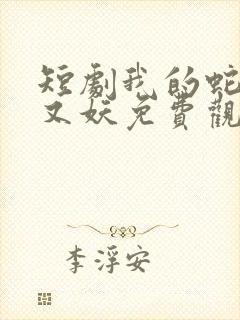 短劇我的蛇
又妖免費觀
李浮安